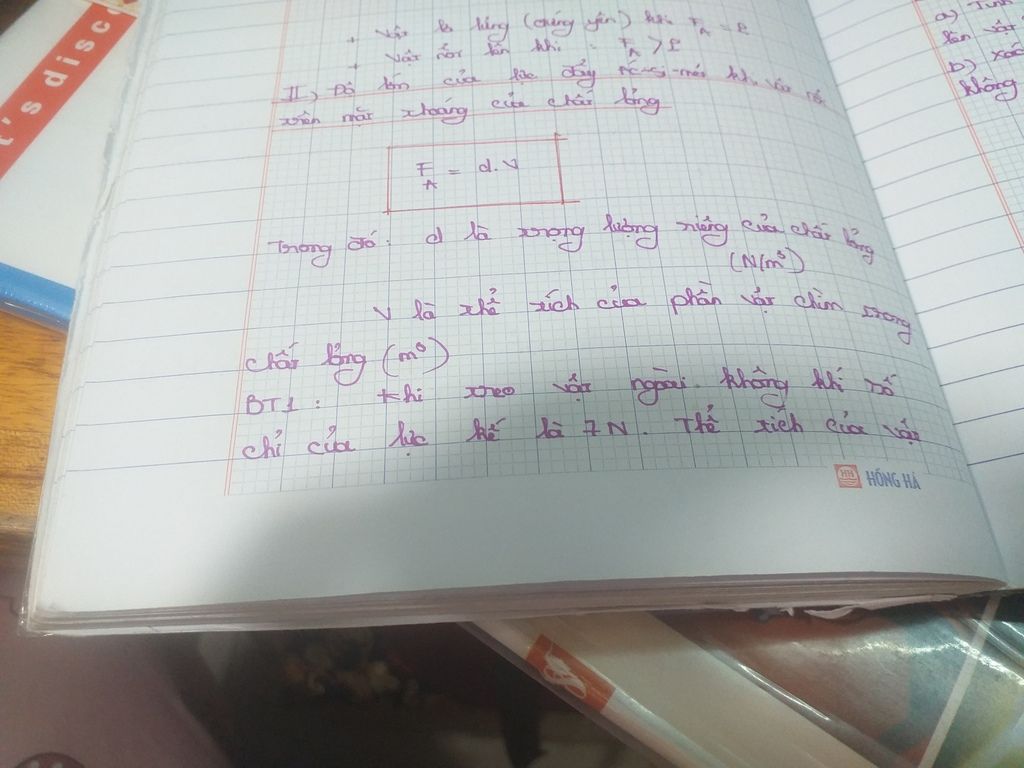 + Vật lơ lửng (đứng yên) khi F_A = P
+ Vật nổi lên khi : F_A > P
II, Độ lớn của lực đẩy Ác-si-mét khi vật nổi
trên mặt thoáng của chất lỏng
F_A = d.V
Trong đó: d là trọng lượng riêng của chất lỏng
(N/m³)
V là thể tích của phần vật chìm trong
chất lỏng (m³)
BT1: Khi treo vật ngoài không khí số
chỉ của lực kế là 7N. Thể tích của vật
HH HỒNG HÀ
t's disc
a) Tính
lên vật
b)
không